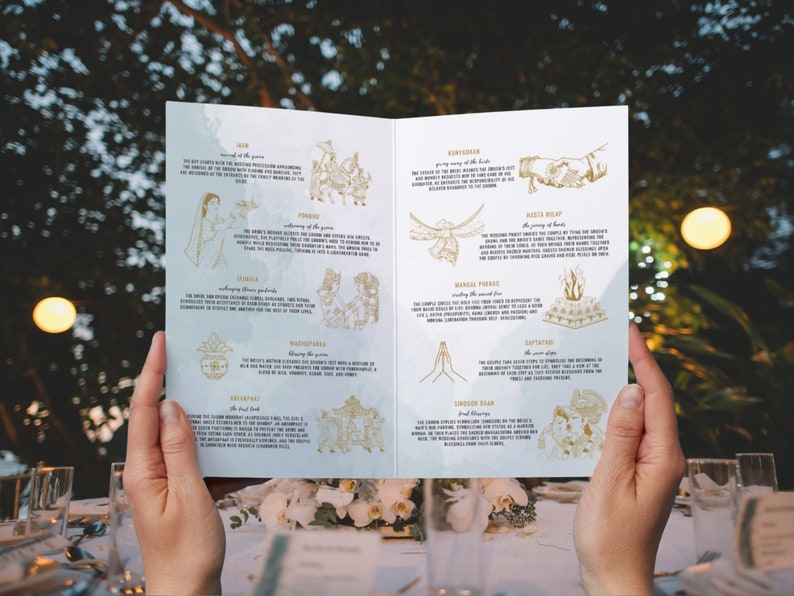 JAAN
arrival of the groom
THE DAY STARTS WITH THE WEDDING PROCESSION ANNOUNCING
THE ARRIVAL OF THE GROOM WITH SINGING AND DANCING. THEY
ARE WELCOMED AT THE ENTRANCE BY THE FAMILY MEMBERS OF THE
BRIDE.
PONKHU
welcoming of the groom
THE BRIDE'S MOTHER BLESSES THE GROOM AND OFFERS HIM SWEETS.
AFTERWARDS, SHE PLAYFULLY PULLS THE GROOM'S NOSE TO REMIND HIM TO BE
HUMBLE WHILE REQUESTING THEIR DAUGHTER'S HAND. THE GROOM TRIES TO
EVADE THE NOSE-PULLING, TURNING IT INTO A LIGHTHEARTED GAME.
JAIMALA
exchanging flower garlands
THE BRIDE AND GROOM EXCHANGE FLORAL GARLANDS. THIS RITUAL
SYMBOLIZES THEIR ACCEPTANCE OF EACH OTHER AS SPOUSES AND THEIR
COMMITMENT TO RESPECT ONE ANOTHER FOR THE REST OF THEIR LIVES.
MADHUPARKA
blessing the groom
THE BRIDE'S MOTHER CLEANSES THE GROOM'S FEET WITH A MIXTURE OF
MILK AND WATER. SHE THEN PRESENTS THE GROOM WITH PANCHAMRUT, A
BLEND OF MILK, YOGHURT, SUGAR, GHEE, AND HONEY.
ANTARPAAT
the first look
DURING THE SHUBH MUHURAT (AUSPICIOUS TIME), THE GIRL'S
UNCLE ESCORTS HER TO THE MANDAP. AN ANTARPAAT (A
CLOTH) IS RAISED TO PREVENT THE BRIDE AND
FROM SEEING EACH OTHER. AS SHLOKAS (HOLY VERSES) ARE
THE ANTARPAAT IS EVENTUALLY LOWERED, AND THE COUPLE
IS SHOWERED WITH RICE).
KANYADAAN
giving away of the bride
THE FATHER OF THE BRIDE WASHES THE GROOM'S FEET
AND HUMBLY REQUESTS HIM TO TAKE CARE OF HIS
DAUGHTER. HE ENTRUSTS THE RESPONSIBILITY OF HIS
BELOVED DAUGHTER TO THE GROOM.
HASTA MILAP
the joining of hands
THE WEDDING PRIEST UNIFIES THE COUPLE BY TYING THE GROOM'S
SHAWL AND THE BRIDE'S SAREE TOGETHER, REPRESENTING THE
BINDING OF THEIR SOULS. HE THEN BRINGS THEIR HANDS TOGETHER
AND RECITES SACRED MANTRAS. GUESTS SHOWER BLESSINGS UPON
THE COUPLE BY THROWING RICE GRAINS AND ROSE PETALS ON THEM.
MANGAL PHERAS
circling the sacred fire
THE COUPLE CIRCLE THE HOLY FIRE FOUR TIMES TO REPRESENT THE
FOUR BASIC GOALS OF LIFE: DHARMA (MORAL SENSE TO LEAD A GOOD
LIFE), ARTHA (PROSPERITY), KAMA (ENERGY AND PASSION) AND
MOKSHA (LIBERATION THROUGH SELF- REALIZATION).
SAPTAPADI
the seven steps
THE COUPLE TAKE SEVEN STEPS TO SYMBOLISE THE BEGINNING OF
THEIR JOURNEY TOGETHER FOR LIFE. THEY TAKE A VOW AT THE
BEGINNING OF EACH STEP AS THEY RECEIVE BLESSINGS FROM THE
PRIEST AND EVERYONE PRESENT.
SINDOOR DAAN
final blessings
THE GROOM APPLIES VERMILLION (SINDOOR) ON THE BRIDE'S
HAIR'S MID PARTING, SYMBOLIZING HER STATUS AS A MARRIED
WOMAN. HE THEN PLACES THE SACRED MANGALSUTRA AROUND HER
NECK. THE WEDDING CONCLUDES WITH THE COUPLE SEEKING
BLESSINGS FROM THEIR ELDERS.